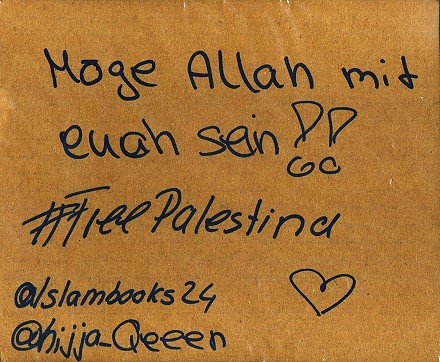 Moge Allah mit
euah sein!!
#FreePalestina
@Islambooks24
@hijja_Qeeen